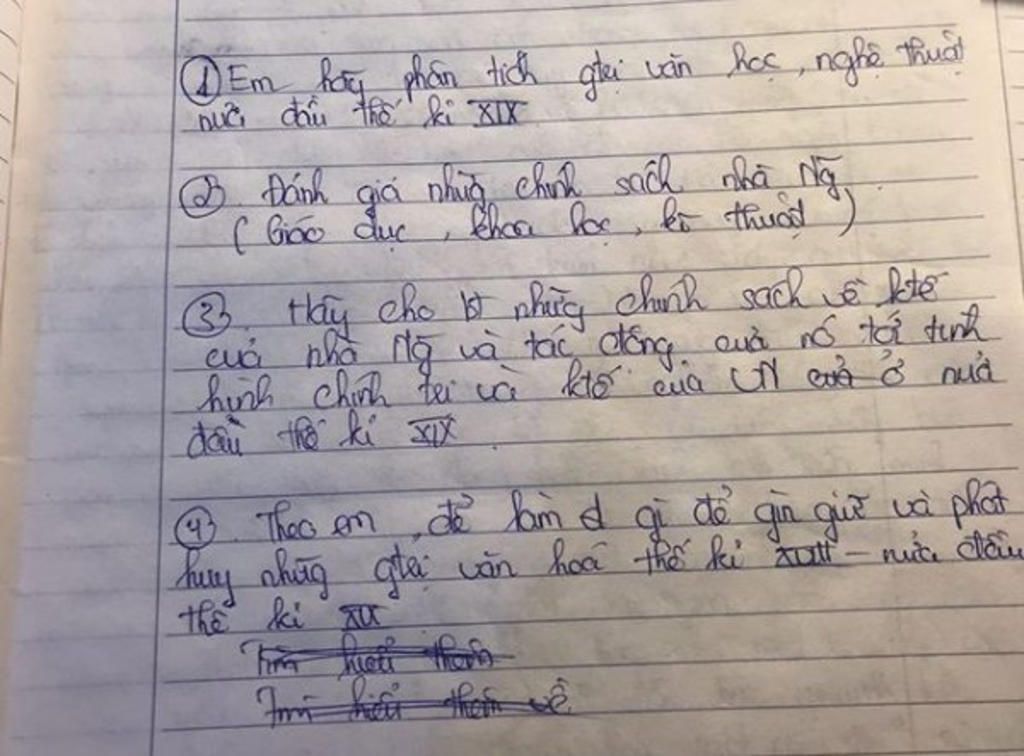 ① Em hãy phân tích gtrị văn học, nghệ thuật
nửa đầu thế kỉ XIX
② Đánh giá những chính sách nhà Ng̃
( Giáo dục, khoa học, kĩ thuật )
③. Hãy cho bt những chính sách về ktế
của nhà Ng̃ và tác động của nó tới tình
hình chính trị và ktế của VN của ở nửa
đầu thế kỉ XIX.
④. Theo em, để làm đ gì để gìn giữ và phát
huy những gtrị văn hoá thế kỉ XVIII – nửa đầu
thế kỉ XIX
Tìm hiểu thêm
Tìm hiểu thêm về